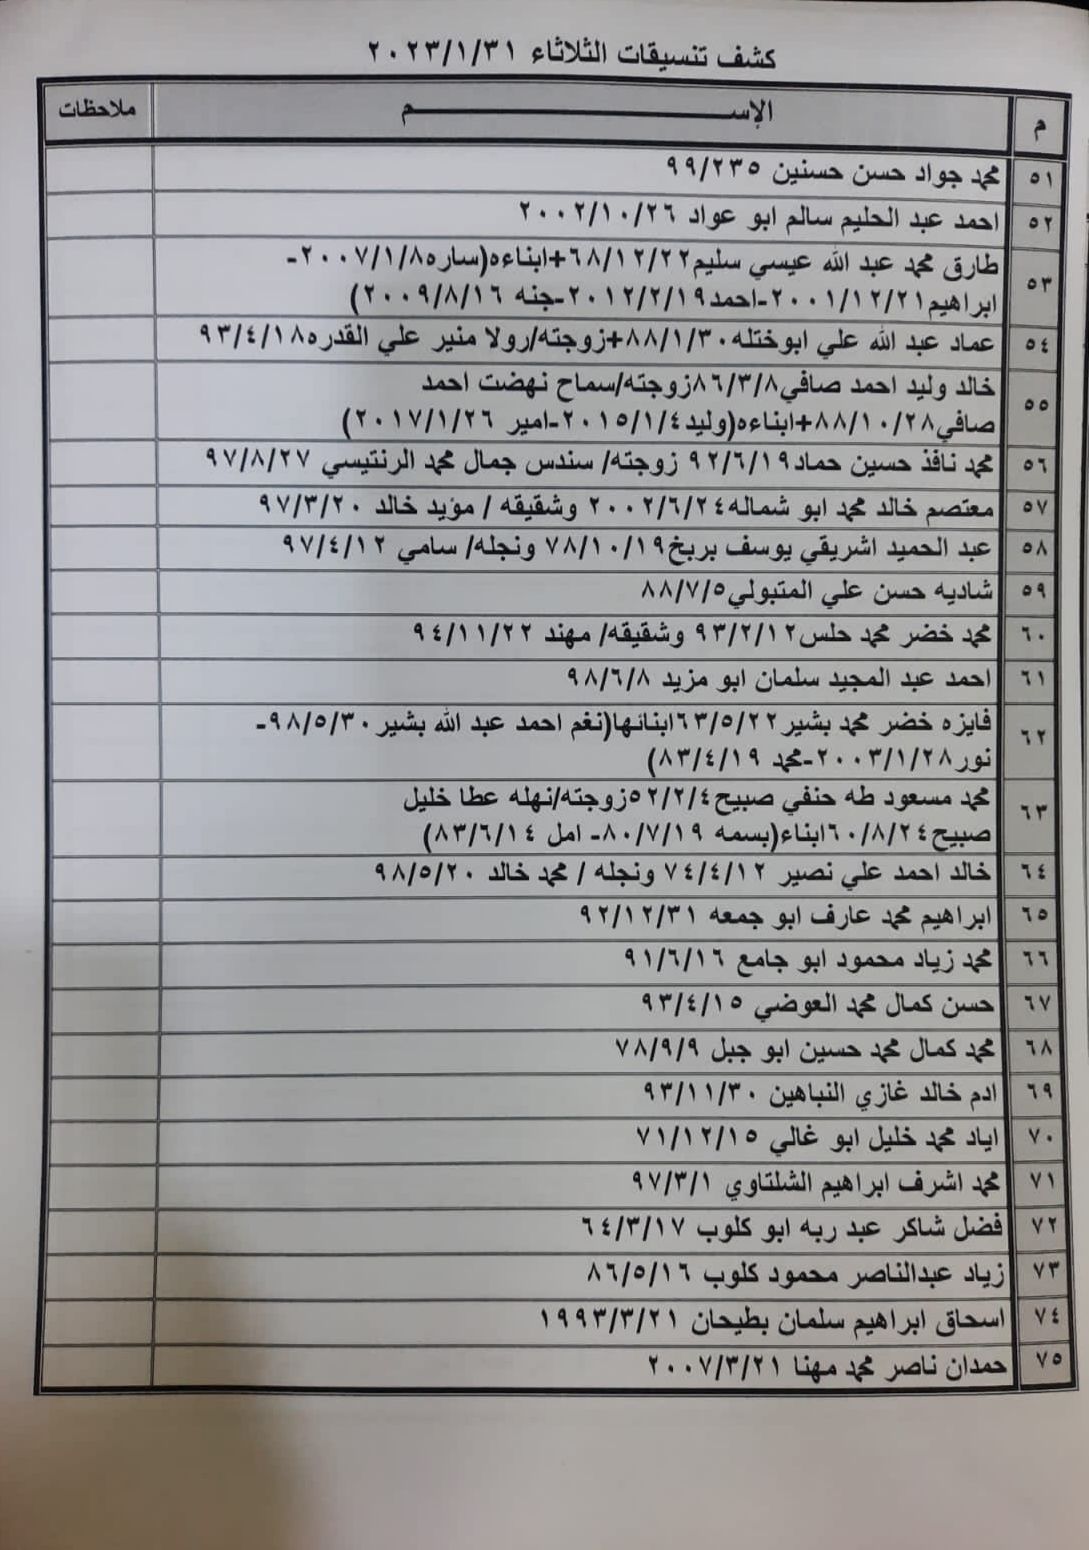 كشف تنسيقات الثلاثاء ٢٠٢٣/١/٣١
م الإســـــم ملاحظات
٥١ محمد جواد حسن حسنين ٩٩/٢٣٥
٥٢ احمد عبد الحليم سالم ابو عواد ٢٠٠٢/١٠/٢٦
٥٣ طارق محمد عبد الله عيسي سليم٦٨/١٢/٢٢+ابناءه(ساره٢٠٠٧/١/٨-
ابراهيم٢٠٠١/١٢/٢١-احمد٢٠١٢/٢/١٩-جنه ٢٠٠٩/٨/١٦)
٥٤ عماد عبد الله علي ابوختله٨٨/١/٣٠+زوجته/رولا منير علي القدره٩٣/٤/١٨
٥٥ خالد وليد احمد صافي٨٦/٣/٨زوجته/سماح نهضت احمد
صافي٨٨/١٠/٢٨+ابناءه(وليد٢٠١٥/١/٤-امير ٢٠١٧/١/٢٦)
٥٦ محمد نافذ حسين حماد٩٢/٦/١٩ زوجته/ سندس جمال محمد الرنتيسي ٩٧/٨/٢٧
٥٧ معتصم خالد محمد ابو شماله٢٠٠٢/٦/٢٤ وشقيقه / مؤيد خالد ٩٧/٣/٢٠
٥٨ عبد الحميد اشريقي يوسف بربخ٧٨/١٠/١٩ ونجله/ سامي ٩٧/٤/١٢
٥٩ شاديه حسن علي المتبولي٨٨/٧/٥
٦٠ محمد خضر محمد حلس٩٣/٢/١٢ وشقيقه/ مهند ٩٤/١١/٢٢
٦١ احمد عبد المجيد سلمان ابو مزيد ٩٨/٦/٨
٦٢ فايزه خضر محمد بشير٦٣/٥/٢٢ابنائها(نغم احمد عبد الله بشير٩٨/٥/٣٠-
نور٢٠٠٣/١/٢٨-محمد ٨٣/٤/١٩)
٦٣ محمد مسعود طه حنفي صبيح٥٢/٢/٤زوجته/نهله عطا خليل
صبيح٦٠/٨/٢٤ابناء(بسمه ٨٠/٧/١٩- امل ٨٣/٦/١٤)
٦٤ خالد احمد علي نصير ٧٤/٤/١٢ ونجله / محمد خالد ٩٨/٥/٢٠
٦٥ ابراهيم محمد عارف ابو جمعه ٩٢/١٢/٣١
٦٦ محمد زياد محمود ابو جامع ٩١/٦/١٦
٦٧ حسن كمال محمد العوضي ٩٣/٤/١٥
٦٨ محمد كمال محمد حسين ابو جبل ٧٨/٩/٩
٦٩ ادم خالد غازي النباهين ٩٣/١١/٣٠
٧٠ اياد محمد خليل ابو غالي ٧١/١٢/١٥
٧١ محمد اشرف ابراهيم الشلتاوي ٩٧/٣/١
٧٢ فضل شاكر عبد ربه ابو كلوب ٦٤/٣/١٧
٧٣ زياد عبدالناصر محمود كلوب ٨٦/٥/١٦
٧٤ اسحاق ابراهيم سلمان بطيحان ١٩٩٣/٣/٢١
٧٥ حمدان ناصر محمد مهنا ٢٠٠٧/٣/٢١